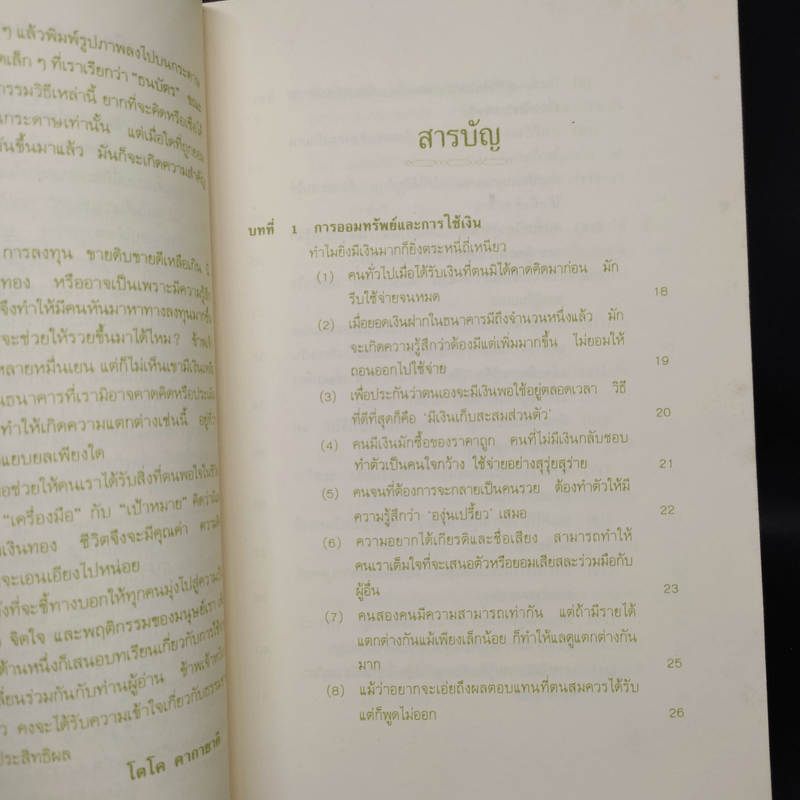 ๆ แล้วพิมพ์รูปภาพลงไปบนกระดาษ
เล็ก ๆ ที่เราเรียกว่า “ธนบัตร”
กรรมวิธีเหล่านี้ ยากที่จะคิดหรือเชื่อได้
นกระดาษเท่านั้น แต่เมื่อใดที่ถูกยอม
ันขึ้นมาแล้ว มันก็จะเกิดความสำคัญ
การลงทุน ขายดิบขายดีเหลือเกิน
ทอง หรืออาจเป็นเพราะมีความรู้สึก
จึงทำให้มีคนหันมาหาทางลงทุนมากขึ้น
จะช่วยให้รวยขึ้นมาได้ไหม? ข้าพเจ้า
หลายหมื่นเยน แต่ก็ไม่เห็นเขามีเงินเหลือ
ธนาคารที่เรามิอาจคาดคิดหรือประเมิน
ทำให้เกิดความแตกต่างเช่นนี้ อยู่ที่ว่า
แยบยลเพียงใด
อช่วยให้คนเราได้รับสิ่งที่ตนพอใจในชีวิต
“เครื่องมือ” กับ “เป้าหมาย” คิดว่า
เงินทอง ชีวิตจึงจะมีคุณค่า ความคิด
จะเอนเอียงไปหน่อย
งที่จะชี้ทางบอกให้ทุกคนมุ่งไปสู่ความเป็น
จิตใจ และพฤติกรรมของมนุษย์เรา
ด้านหนึ่งก็เสนอบทเรียนเกี่ยวกับการใช้
ลี่ยนร่วมกันกับท่านผู้อ่าน ข้าพเจ้าหวัง
ว คงจะได้รับความเข้าใจเกี่ยวกับธรรม
ประสิทธิผล
โตโค คากาฮาคิ
สารบัญ
บทที่ 1 การออมทรัพย์และการใช้เงิน
ทำไมยิ่งมีเงินมากก็ยิ่งตระหนี่ถี่เหนียว
(1) คนทั่วไปเมื่อได้รับเงินที่ตนมิได้คาดคิดมาก่อน มัก
รีบใช้จ่ายจนหมด 18
(2) เมื่อยอดเงินฝากในธนาคารมีถึงจำนวนหนึ่งแล้ว มัก
จะเกิดความรู้สึกว่าต้องมีแต่เพิ่มมากขึ้น ไม่ยอมให้
ถอนออกไปใช้จ่าย 19
(3) เพื่อประกันว่าตนเองจะมีเงินพอใช้อยู่ตลอดเวลา วิธี
ที่ดีที่สุดก็คือ ‘มีเงินเก็บสะสมส่วนตัว’ 20
(4) คนมีเงินมักซื้อของราคาถูก คนที่ไม่มีเงินกลับชอบ
ทำตัวเป็นคนใจกว้าง ใช้จ่ายอย่างสุรุ่ยสุร่าย 21
(5) คนจนที่ต้องการจะกลายเป็นคนรวย ต้องทำตัวให้มี
ความรู้สึกว่า ‘องุ่นเปรี้ยว’ เสมอ 22
(6) ความอยากได้เกียรติและชื่อเสียง สามารถทำให้
คนเราเต็มใจที่จะเสนอตัวหรือยอมเสียสละร่วมมือกับ
ผู้อื่น 23
(7) คนสองคนมีความสามารถเท่ากัน แต่ถ้ามีรายได้
แตกต่างกันแม้เพียงเล็กน้อย ก็ทำให้แลดูแตกต่างกัน
มาก 25
(8) แม้ว่าอยากจะเอ่ยถึงผลตอบแทนที่ตนสมควรได้รับ
แต่ก็พูดไม่ออก 26